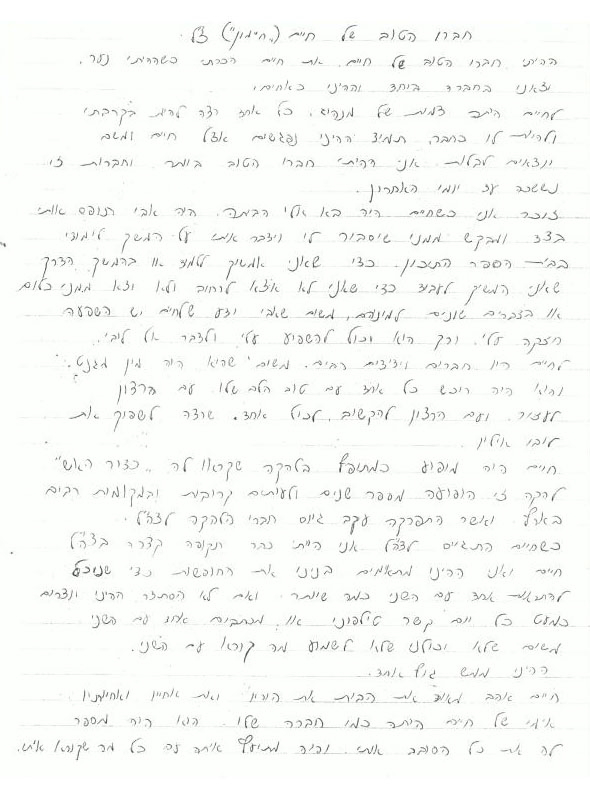 חברו הטוב של חיים ("חיימון") ז"ל.
הייתי חברו הטוב של חיים. את חיים הכרתי כשהייתי נער,
יצאנו בחברה ביחד והיינו כאחים.
לחיים היתה דמות של מנהיג, כל אחד רצה להיות בקרבתו
ולהיות לו כחבר, תמיד היינו נפגשים אצל חיים ומשם
יוצאים לבלות. אני הייתי חברו הטוב ביותר וחברות זו
נמשכה עד יומו האחרון.
זוכר אני כשחיים היה בא אלי הביתה. היה אבי תופס אותו
בצד ומבקש ממנו שיסביר לי וידבר איתי על המשך לימודי
בבית הספר התיכון. כדי שאני אמשיך ללמוד או בהמשך הדרך
שאני המשיך לעבוד כדי שאני לא אצא לרחוב ולא יצא ממני כלום
או בדברים שונים למיניהם, משום שאבי ידע שלחיים יש השפעה
חזקה עלי, ורק הוא יכול להשפיע עלי ולדבר אל ליבי.
לחיים היו חברים וידידים רבים. משום שהוא היה מין מגנט.
והוא היה רוכש כל אחד עם טוב הלב שלו. עם הרצון
לעזור. ועם הרצון להקשיב לכול אחד. שרצה לשפוך את
ליבו אליו.
חיים היה מופיע כמתופף בלהקה שקראו לה "כדור האש"
להקה זו הופיעה מספר שנים ולעיתים קרובות ובמקומות רבים
בארץ. ואשר התפרקה עקב גיוס חברי הלהקה לצה"ל.
כשחיים התגייס לצה"ל אני הייתי כבר תקופה קצרה בצה"ל
חיים ואני היינו מתאמים בנינו את החופשות כדי שנוכל
להתראות אחד עם השני כמה שיותר. ואם לא הסתדר היינו יוצרים
כמעט כל יום קשר טילפוני או מכתבים אחד עם השני
משום שלא יכולנו שלא לשמוע מה קורא עם השני.
היינו ממש גוף אחד.
חיים אהב מאוד את הבית את הוריו ואת אחיו ואחיותיו
אימו של חיים היתה כמו חברה שלו. הוא היה מספר
לה את כל הסובב אותו. והיה מתיעץ איתה על כל מה שקורא איתו.